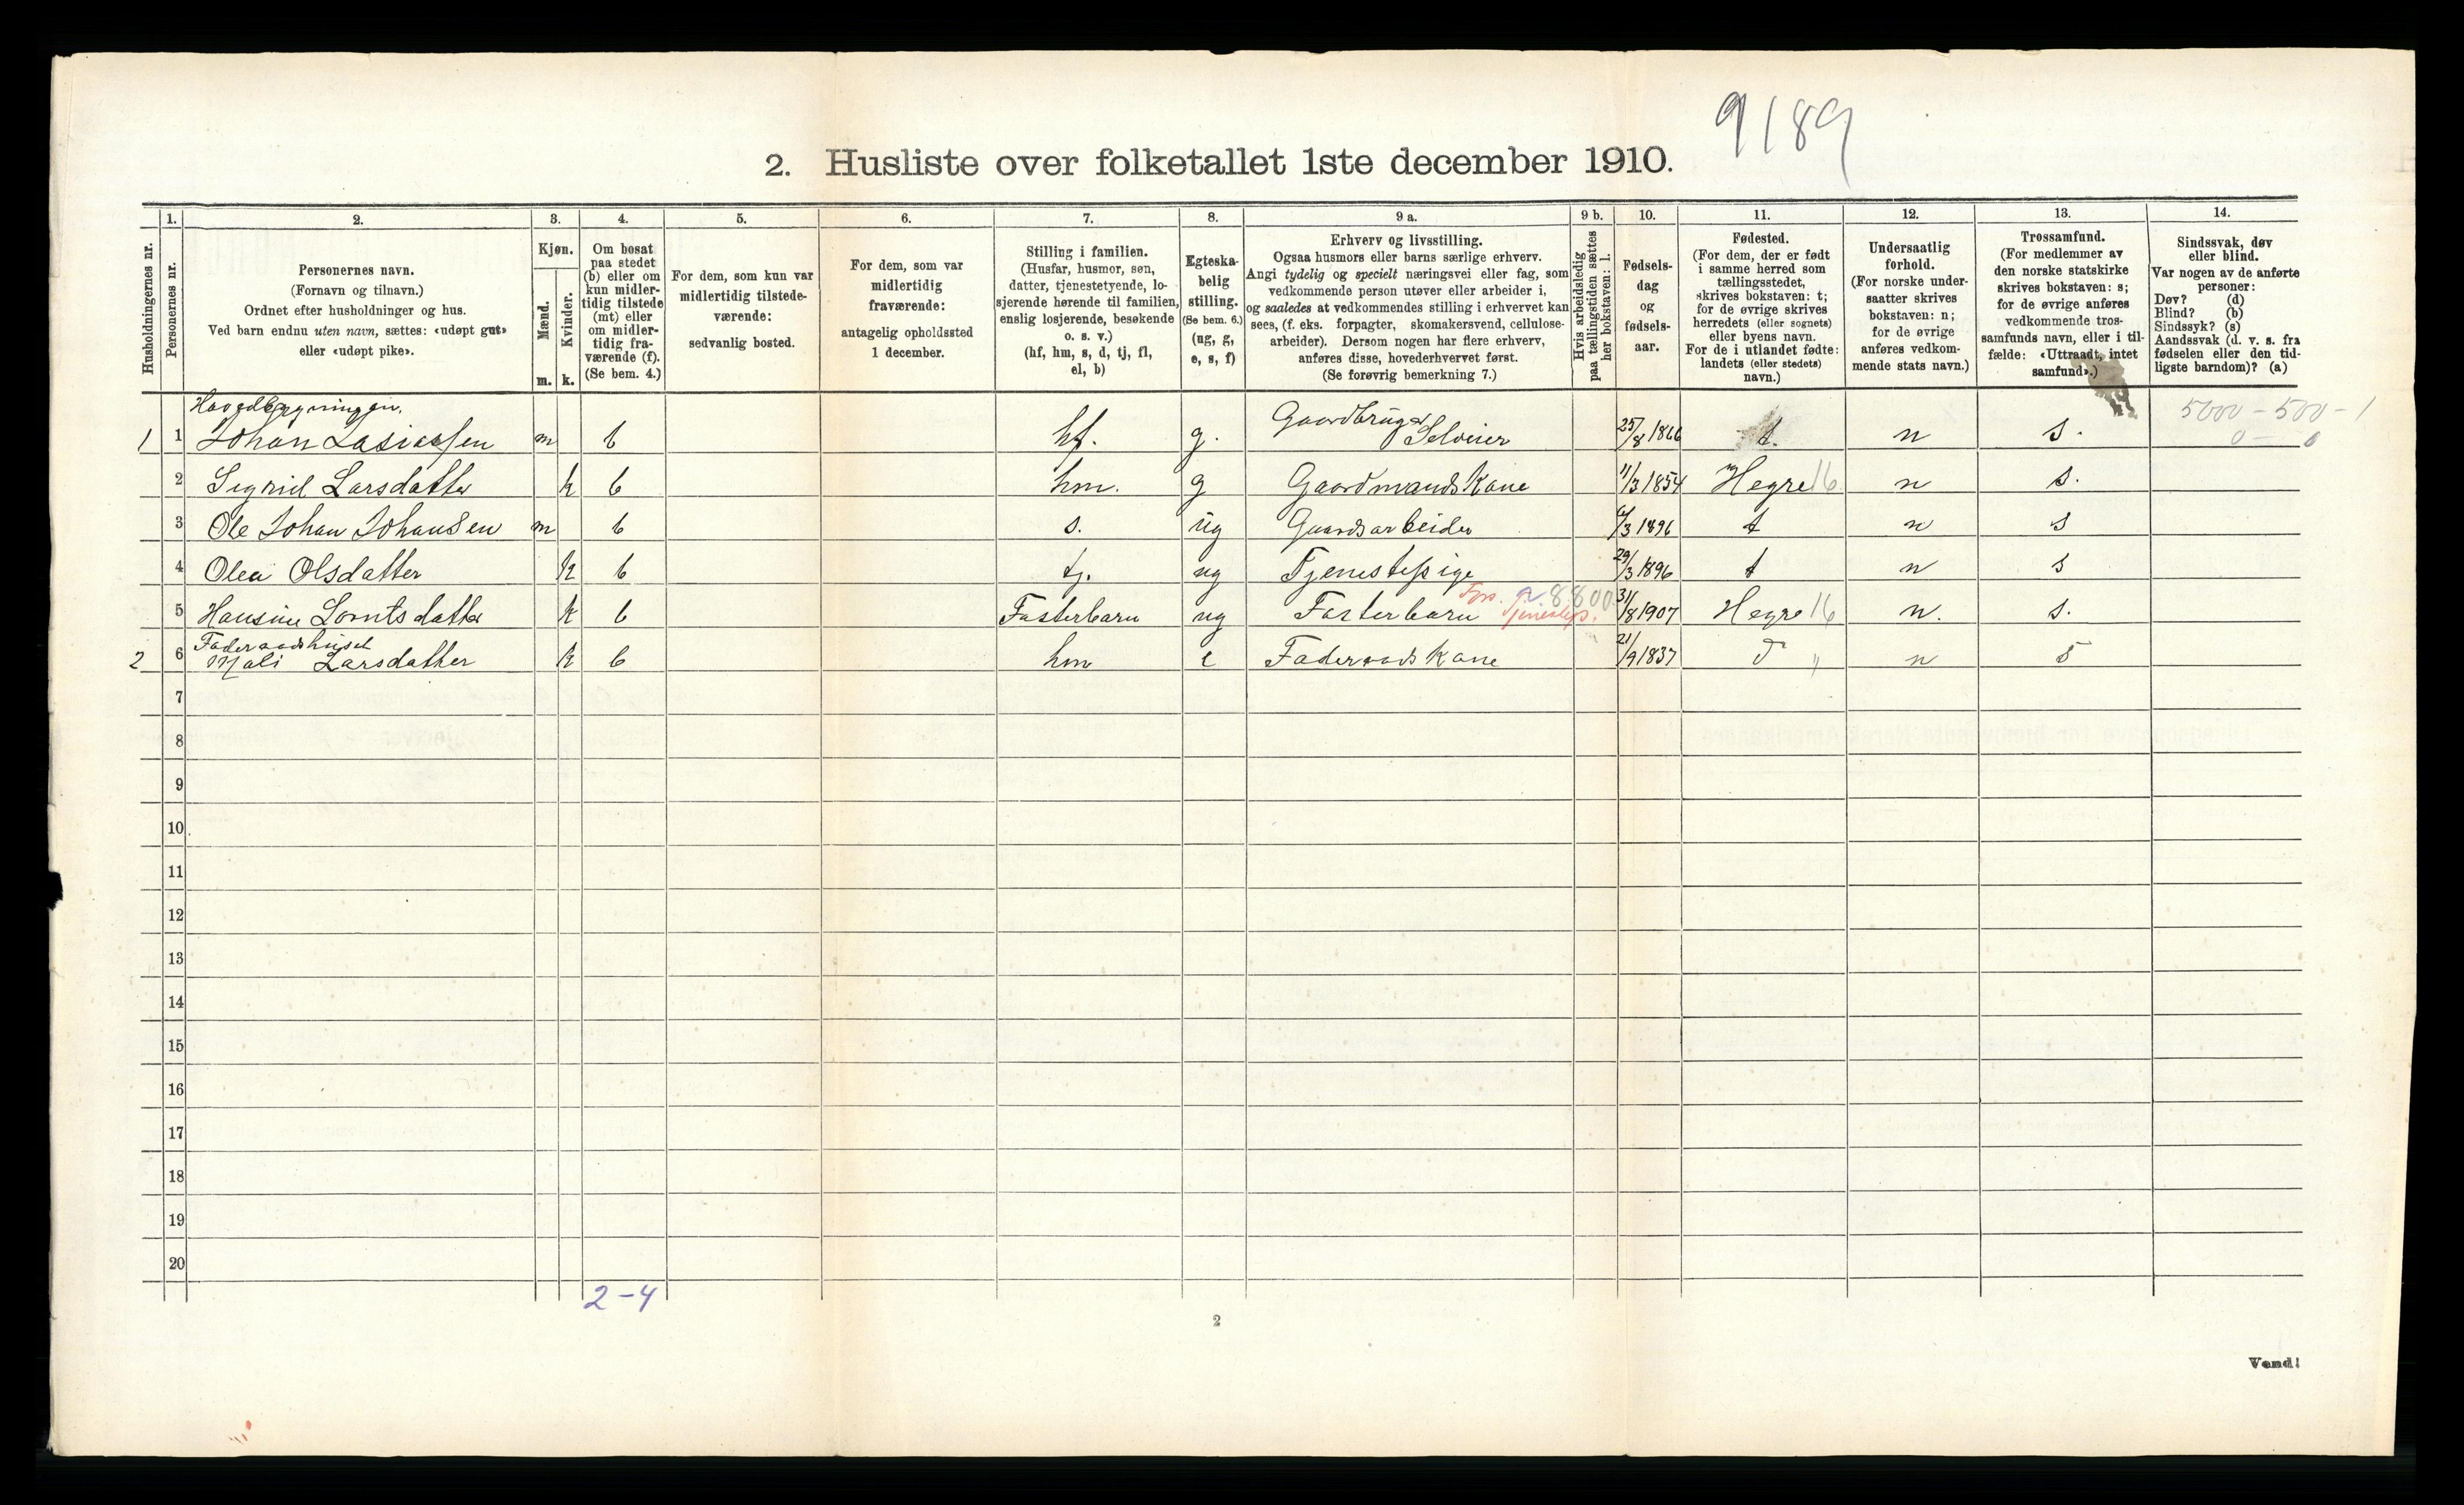 9189
2. Husliste over folketallet 1ste december 1910.
1. 2. 3. 4. 5. 6. 7. 8. 9 a. 9 b. 10. 11. 12. 13. 14.
Husholdningernes nr.
Personernes nr.
Personernes navn.
(Fornavn og tilnavn.)
Ordnet efter husholdninger og hus.
Ved barn endnu uten navn, sættes: «udøpt gut»
eller «udøpt pike».
Kjøn.
Mænd.
Kvinder.
m. k.
Om bosat
paa stedet
(b) eller om
kun midler-
tidig tilstede
(mt) eller
om midler-
tidig fra-
værende (f).
(Se bem. 4.)
For dem, som kun var
midlertidig tilstede-
værende:
sedvanlig bosted.
For dem, som var
midlertidig
fraværende:
antagelig opholdssted
1 december.
Stilling i familien.
(Husfar, husmor, søn,
datter, tjenestetyende, lo-
sjerende hørende til familien,
enslig losjerende, besøkende
o. s. v.)
(hf, hm, s, d, tj, fl,
el, b)
Egteska-
belig
stilling.
(Se bem. 6.)
(ug, g,
e, s, f)
Erhverv og livsstilling.
Ogsaa husmors eller barns særlige erhverv.
Angi tydelig og specielt næringsvei eller fag, som
vedkommende person utøver eller arbeider i,
og saaledes at vedkommendes stilling i erhvervet kan
sees, (f. eks. forpagter, skomakersvend, cellulose-
arbeider). Dersom nogen har flere erhverv,
anføres disse, hovederhvervet først.
(Se forøvrig bemerkning 7.)
Hvis arbeidsledig
paa tællingstiden sættes
her bokstaven: l.
Fødsels-
dag
og
fødsels-
aar.
Fødested.
(For dem, der er født
i samme herred som
tællingsstedet,
skrives bokstaven: t;
for de øvrige skrives
herredets (eller sognets)
eller byens navn.
For de i utlandet fødte:
landets (eller stedets)
navn.)
Undersaatlig
forhold.
(For norske under-
saatter skrives
bokstaven: n;
for de øvrige
anføres vedkom-
mende stats navn.)
Trossamfund.
(For medlemmer av
den norske statskirke
skrives bokstaven: s;
for de øvrige anføres
vedkommende tros-
samfunds navn, eller i til-
fælde: «Uttraadt, intet
samfund».)
Sindssvak, døv
eller blind.
Var nogen av de anførte
personer:
Døv? (d)
Blind? (b)
Sindssyk? (s)
Aandssvak (d. v. s. fra
fødselen eller den tid-
ligste barndom)? (a)
Hovedbygningen.
5000 - 500 - 1
0 - 0
1 1 Johan Lasiassen m b hf. g. Gaardbruger Selveier 25/8 1866 t. n s.
2 Sigrid Larsdatter k b hm. g Gaardmands Kone 11/3 1854 Hegre 16 n s.
3 Ole Johan Johansen m b s. ug Gaardsarbeider /3 1896 t n s
4 Olea Olsdatter k b tj. ug Tjenestepige 29/3 1896 t n s
5 Hansine Lorntsdatter k b Fosterbarn ug Fosterbarn 8800 31/8 1907 Hegre 16 n. s.
Føderaadshuset
2 6 Mali Larsdatter k b hm e Føderaads Kone 21/9 1837 " n s
7
8
9
10
11
12
13
14
15
16
17
18
19
20
2-4
2
Vend!